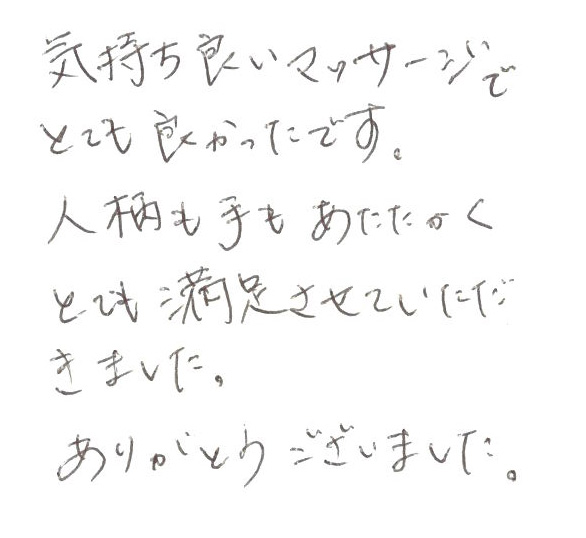 気持ち良いマッサージで
とても良かったです。
人柄も手もあたたかく
とても満足させていただ
きました。
ありがとうございました。